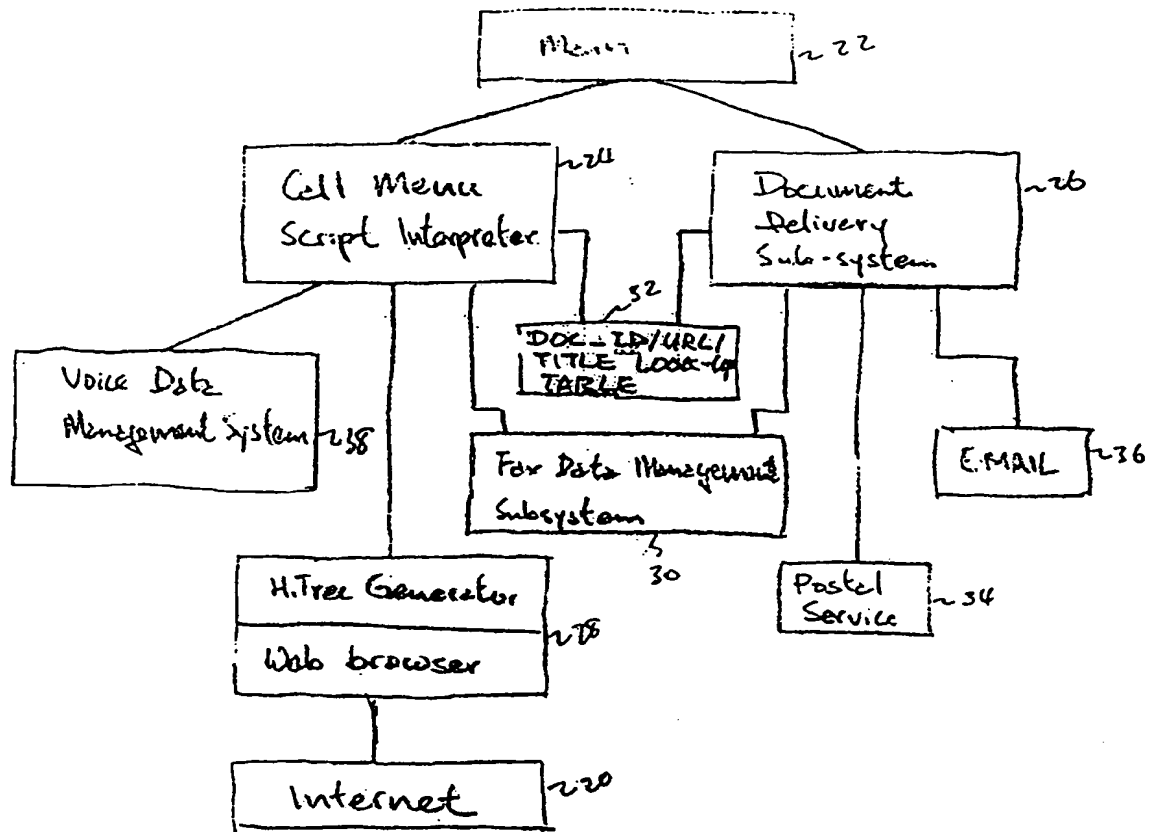 22
24
Call Menu
Script Interpreter
26
Document
Delivery
Sub-system
32
DOC-ID/URL/
TITLE LOOK-Up
TABLE
Voice Data
Management System
38
Data Management
Subsystem
30
E.MAIL
36
Postal
Service
34
H.Tree Generator
Web browser
28
Internet
20